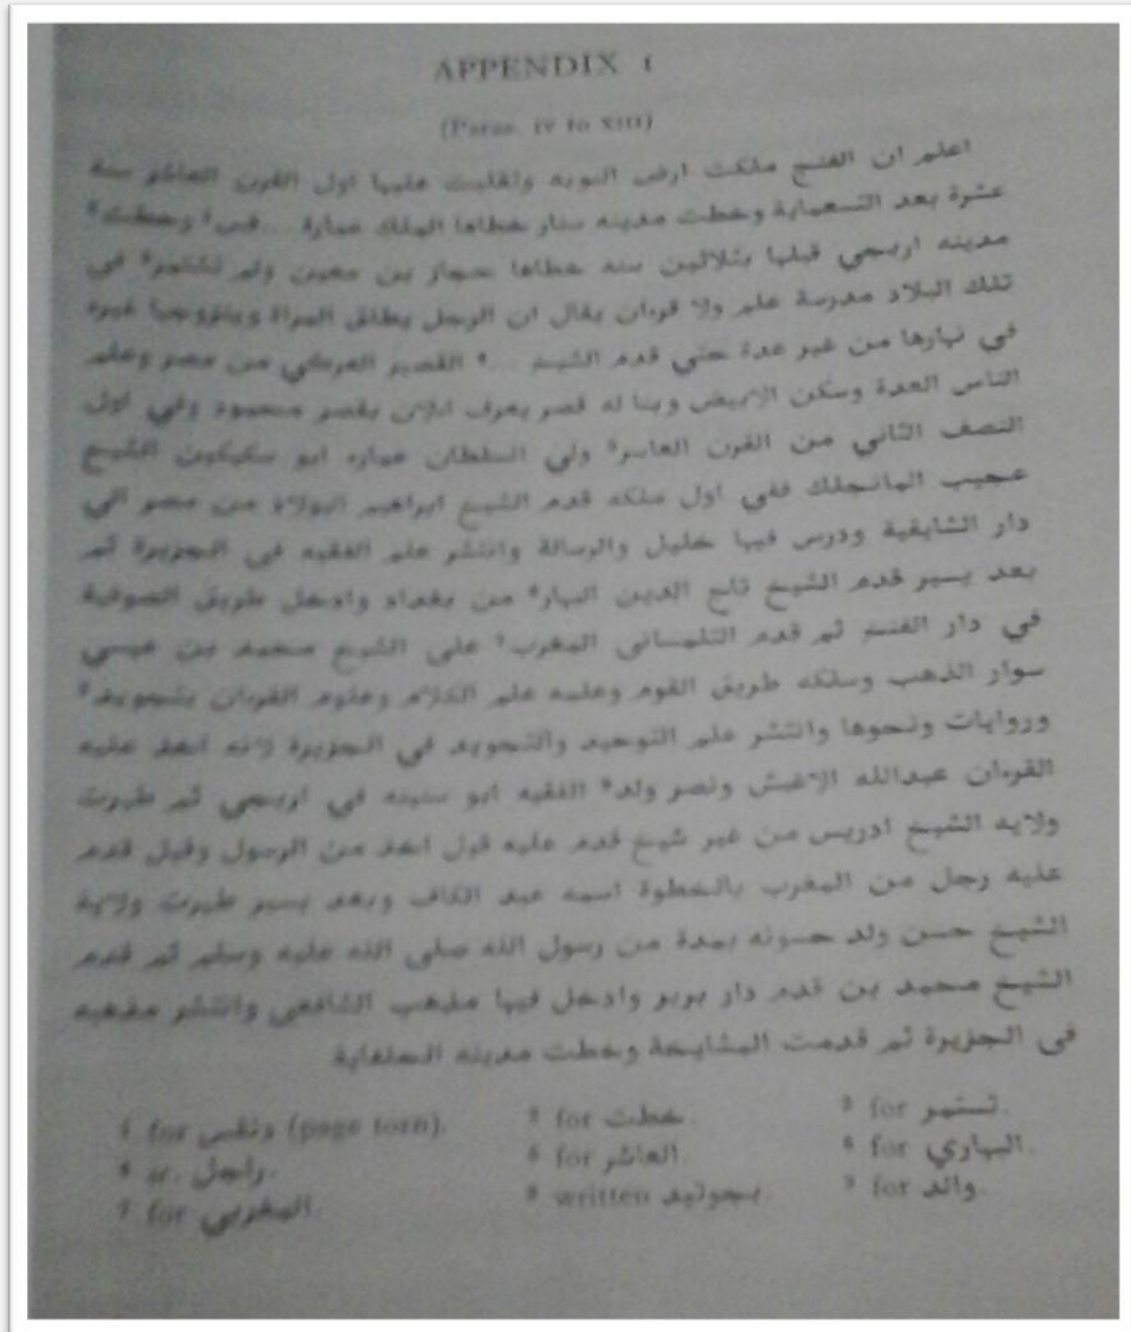 APPENDIX I
(Paras. iv to xiii)
اعلم ان الفنج ملكت ارض النوبه وتغلبت عليها اول القرن العاشر سنه
عشرة بعد التسعماية وخطت مدينه سنار خطاها الملك عمارة ... فى¹ وخطت²
مدينه اربجي قبلها بثلاثين سنه خطاها حجاز بن معين ولم تشتهر³ في
تلك البلاد مدرسة علم ولا قرءان يقال ان الرجل يطلق المراة ويتزوجها غيره
في نهارها من غير عدة حتي قدم الشيخ ...⁴ القصير العركي من مصر وعلم
الناس العدة وسكن الابيض وبنا له قصر يعرف الان بقصر محمود وفي اول
النصف الثاني من القرن العاسر⁵ ولي السلطان عماره ابو سكيكين الشيخ
عجيب المانجلك ففي اول ملكه قدم الشيخ ابراهيم البولاد من مصر الي
دار الشايقية ودرس فيها خليل والرسالة وانتشر علم الفقيه في الجزيرة ثم
بعد يسير قدم الشيخ تاج الدين البهار⁶ من بغداد وادخل طريق الصوفية
في دار الفنج ثم قدم التلمسانى المغرب⁷ على الشيخ محمد بن عيسي
سوار الذهب وسلكه طريق القوم وعلمه علم الكلام وعلوم القرءان بتجويد⁸
وروايات ونحوها وانتشر علم التوحيد والتجويد في الجزيرة لانه اخذ عليه
القرءان عبدالله الاغبش ونصر ولد⁹ الفقيه ابو سنينه في اربجي ثم ظهرت
ولايه الشيخ ادريس من غير شيخ قدم عليه قيل اخذ من الرسول وقيل قدم
عليه رجل من المغرب بالخطوة اسمه عبد الكاف وبعد يسير ظهرت ولاية
الشيخ حسن ولد حسونه بمدة من رسول الله صلى الله عليه وسلم ثم قدم
الشيخ محمد بن قدم دار بربر وادخل فيها مذهب الشافعى وانتشر مذهبه
فى الجزيرة ثم قدمت المشايخة وخطت مدينه الحلفاية
¹ for ونفس (page torn). ² for خطت. ³ for تشتهر.
⁴ sr. راجل. ⁵ for العاشر. ⁶ for البهاري.
⁷ for المغربي. ⁸ written بجوتيد. ⁹ for والد.